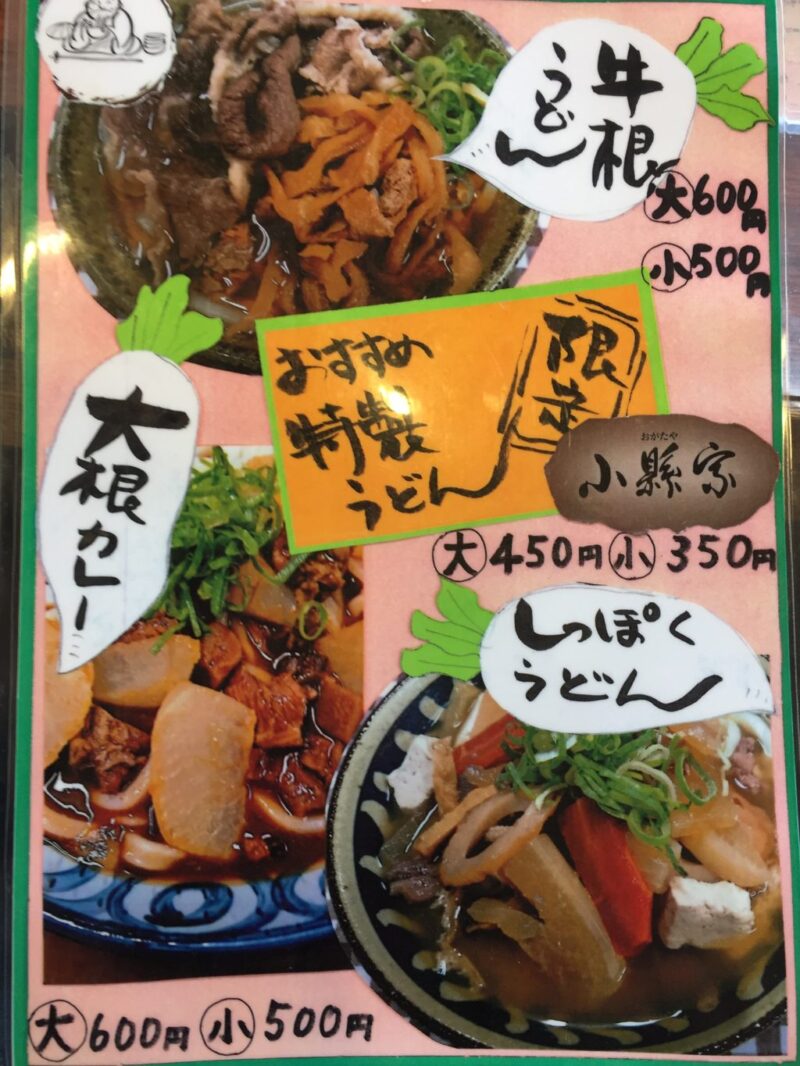 牛根
うどん
大600円
小500円
おすすめ
特製
うどん
限定
おがたや
小縣家
大450円 小350円
大根カレー
しっぽく
うどん
大600円 小500円